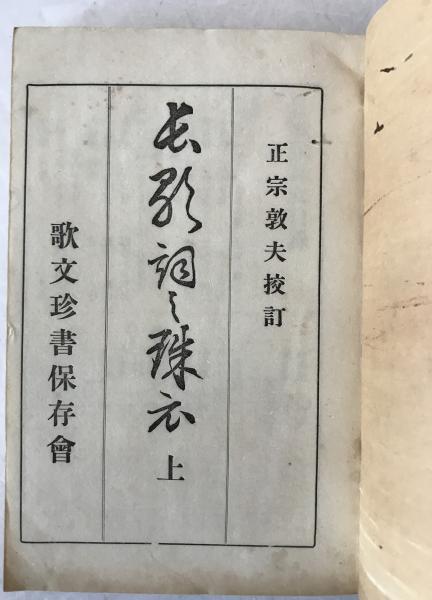 正宗敦夫挍訂
長歌詞之珠衣 上
歌文珍書保存會